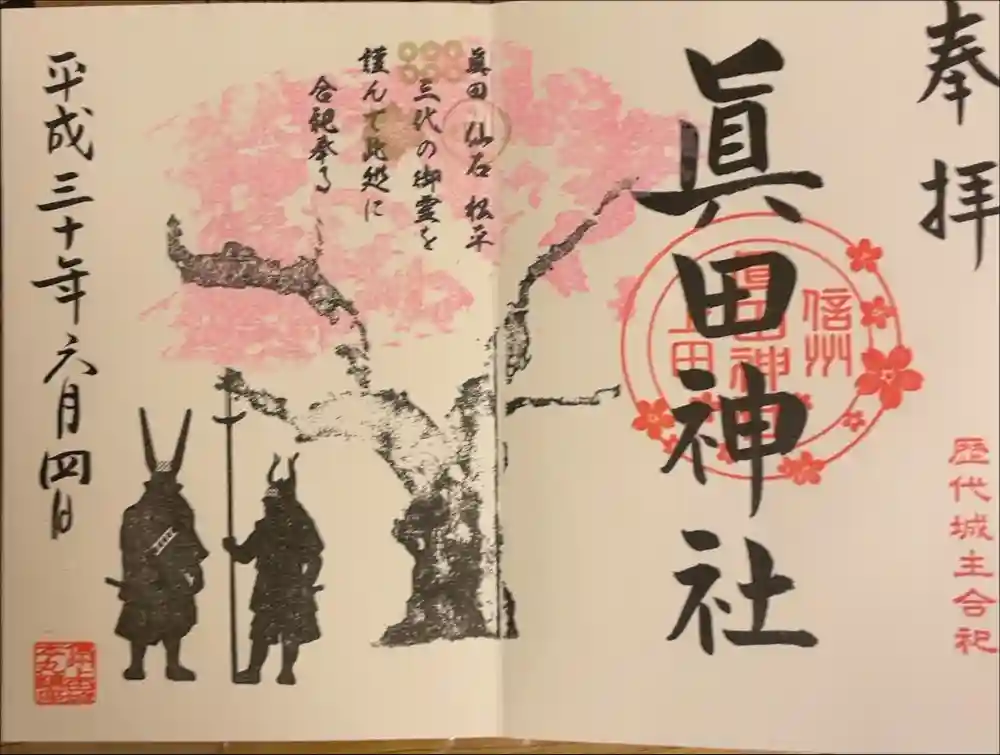 奉拝
眞田神社
信州
眞田神社
上田
歴代城主合祀
眞田 仙石 松平
三代の御霊を
謹んで此処に
合祀奉る
平成三十年六月四日